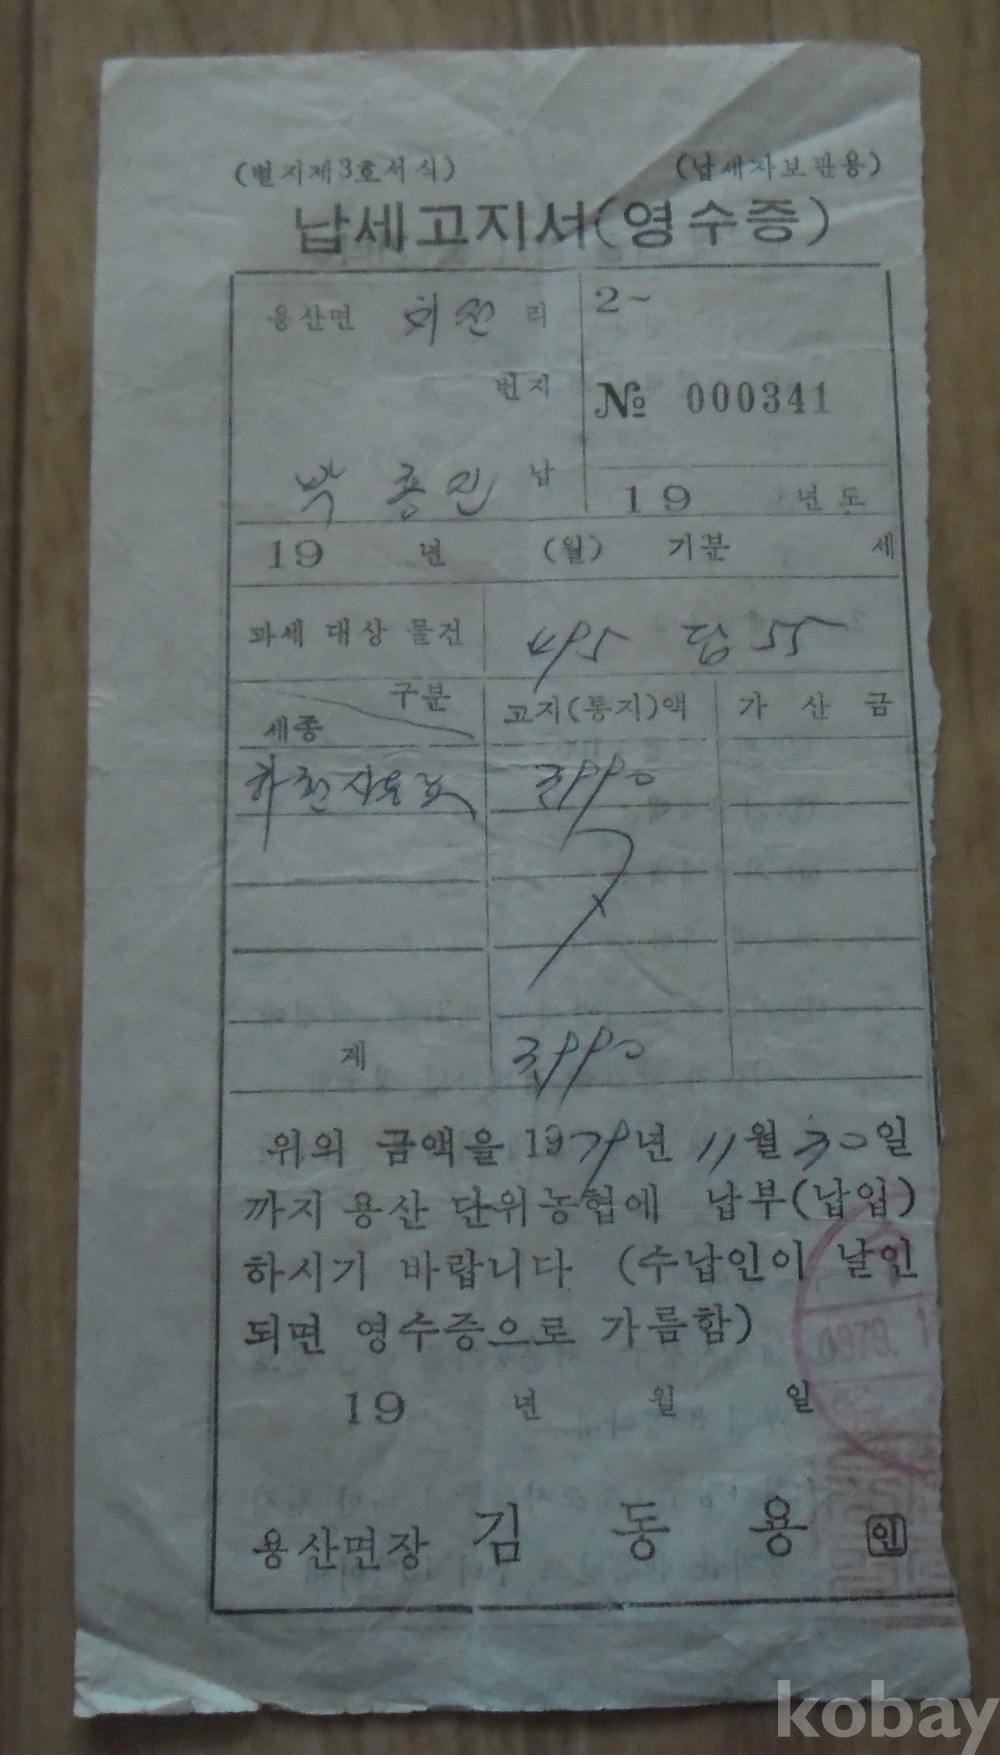 (별지제3호서식) (납세자보관용)
납세고지서(영수증)
용산면 리
2~
번지
№ 000341
박 용진 납
19 년도
19 년 (월) 기분 세
과세 대상 물건 495 답 55
구분
세종
고지(통지)액 가 산 금
하천사용료 3990
계 3,990
위의 금액을 1979년 11월 30일
까지 용산 단위농협에 납부(납입)
하시기 바랍니다 (수납인이 날인
되면 영수증으로 가름함)
1979. 1
19 년 월 일
용산면장 김 동 용 인
kobay